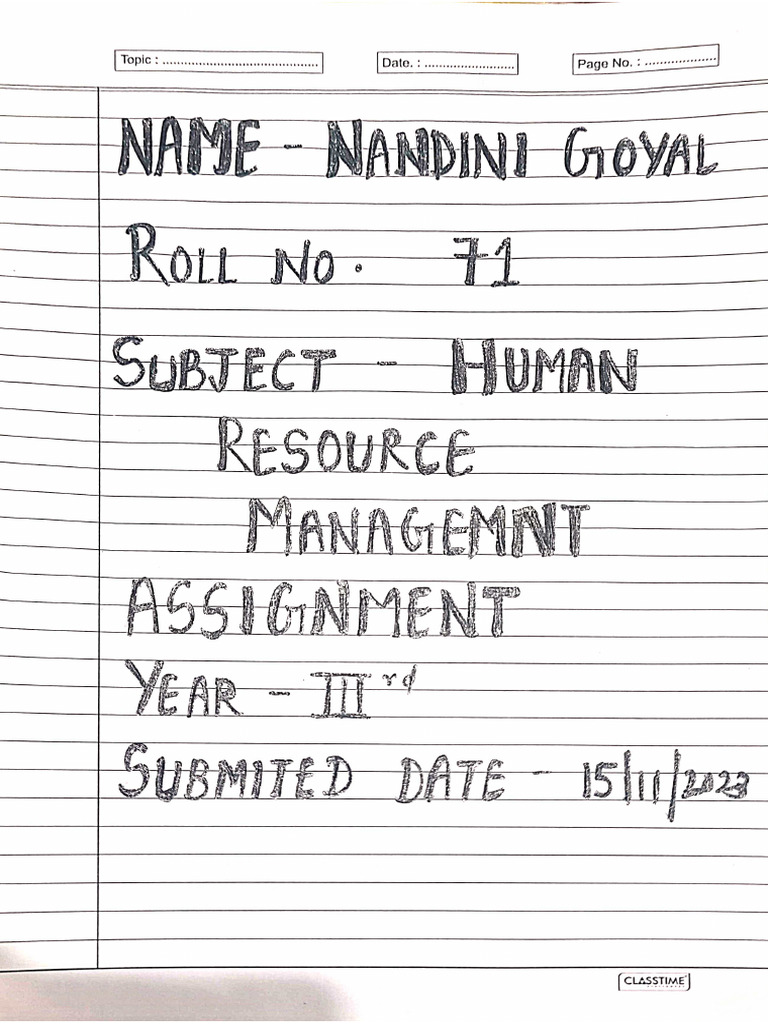 Topic : ............................................ Date. : .......................... Page No. : ....................
NAME - NANDINI GOYAL
ROLL NO. 71
SUBJECT - HUMAN
RESOURCE
MANAGEMNT
ASSIGNMENT
YEAR - III rd
SUBMITED DATE - 15/11/2023
CLASSTIME